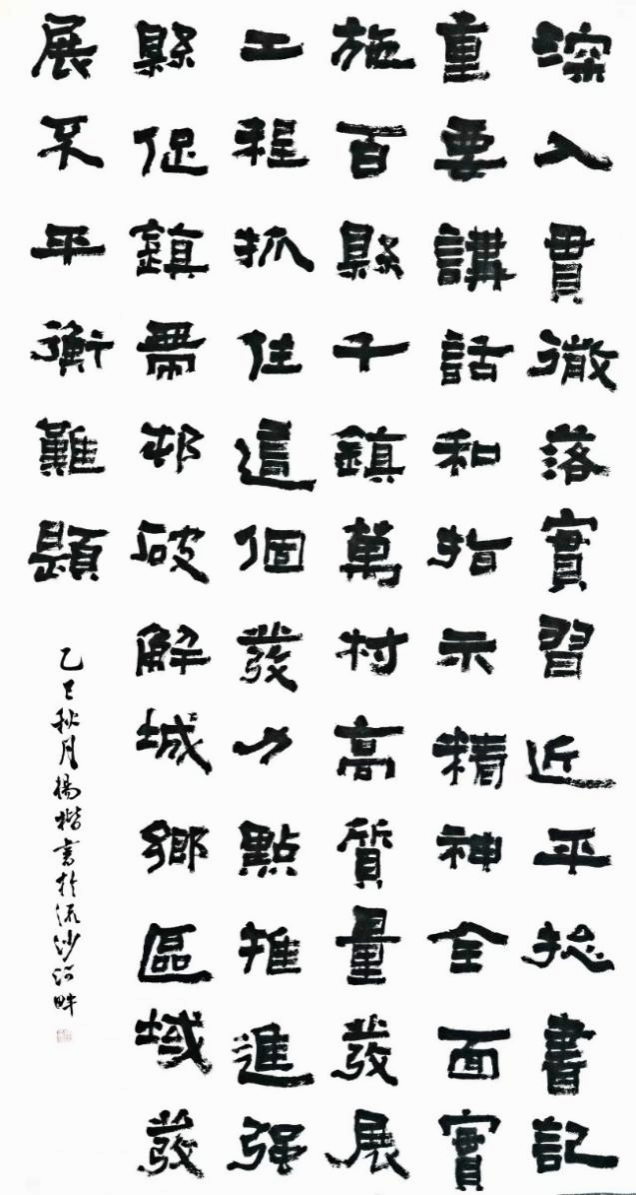 深入貫徹落實習近平総書記
重要講話和指示精神全面實
施百縣千鎮萬村高質量發展
工程抓住這個發力點推進强
縣促鎮帶邨破解城鄉區域發
展不平衡難題
乙巳秋月楊楷書於流沙河畔